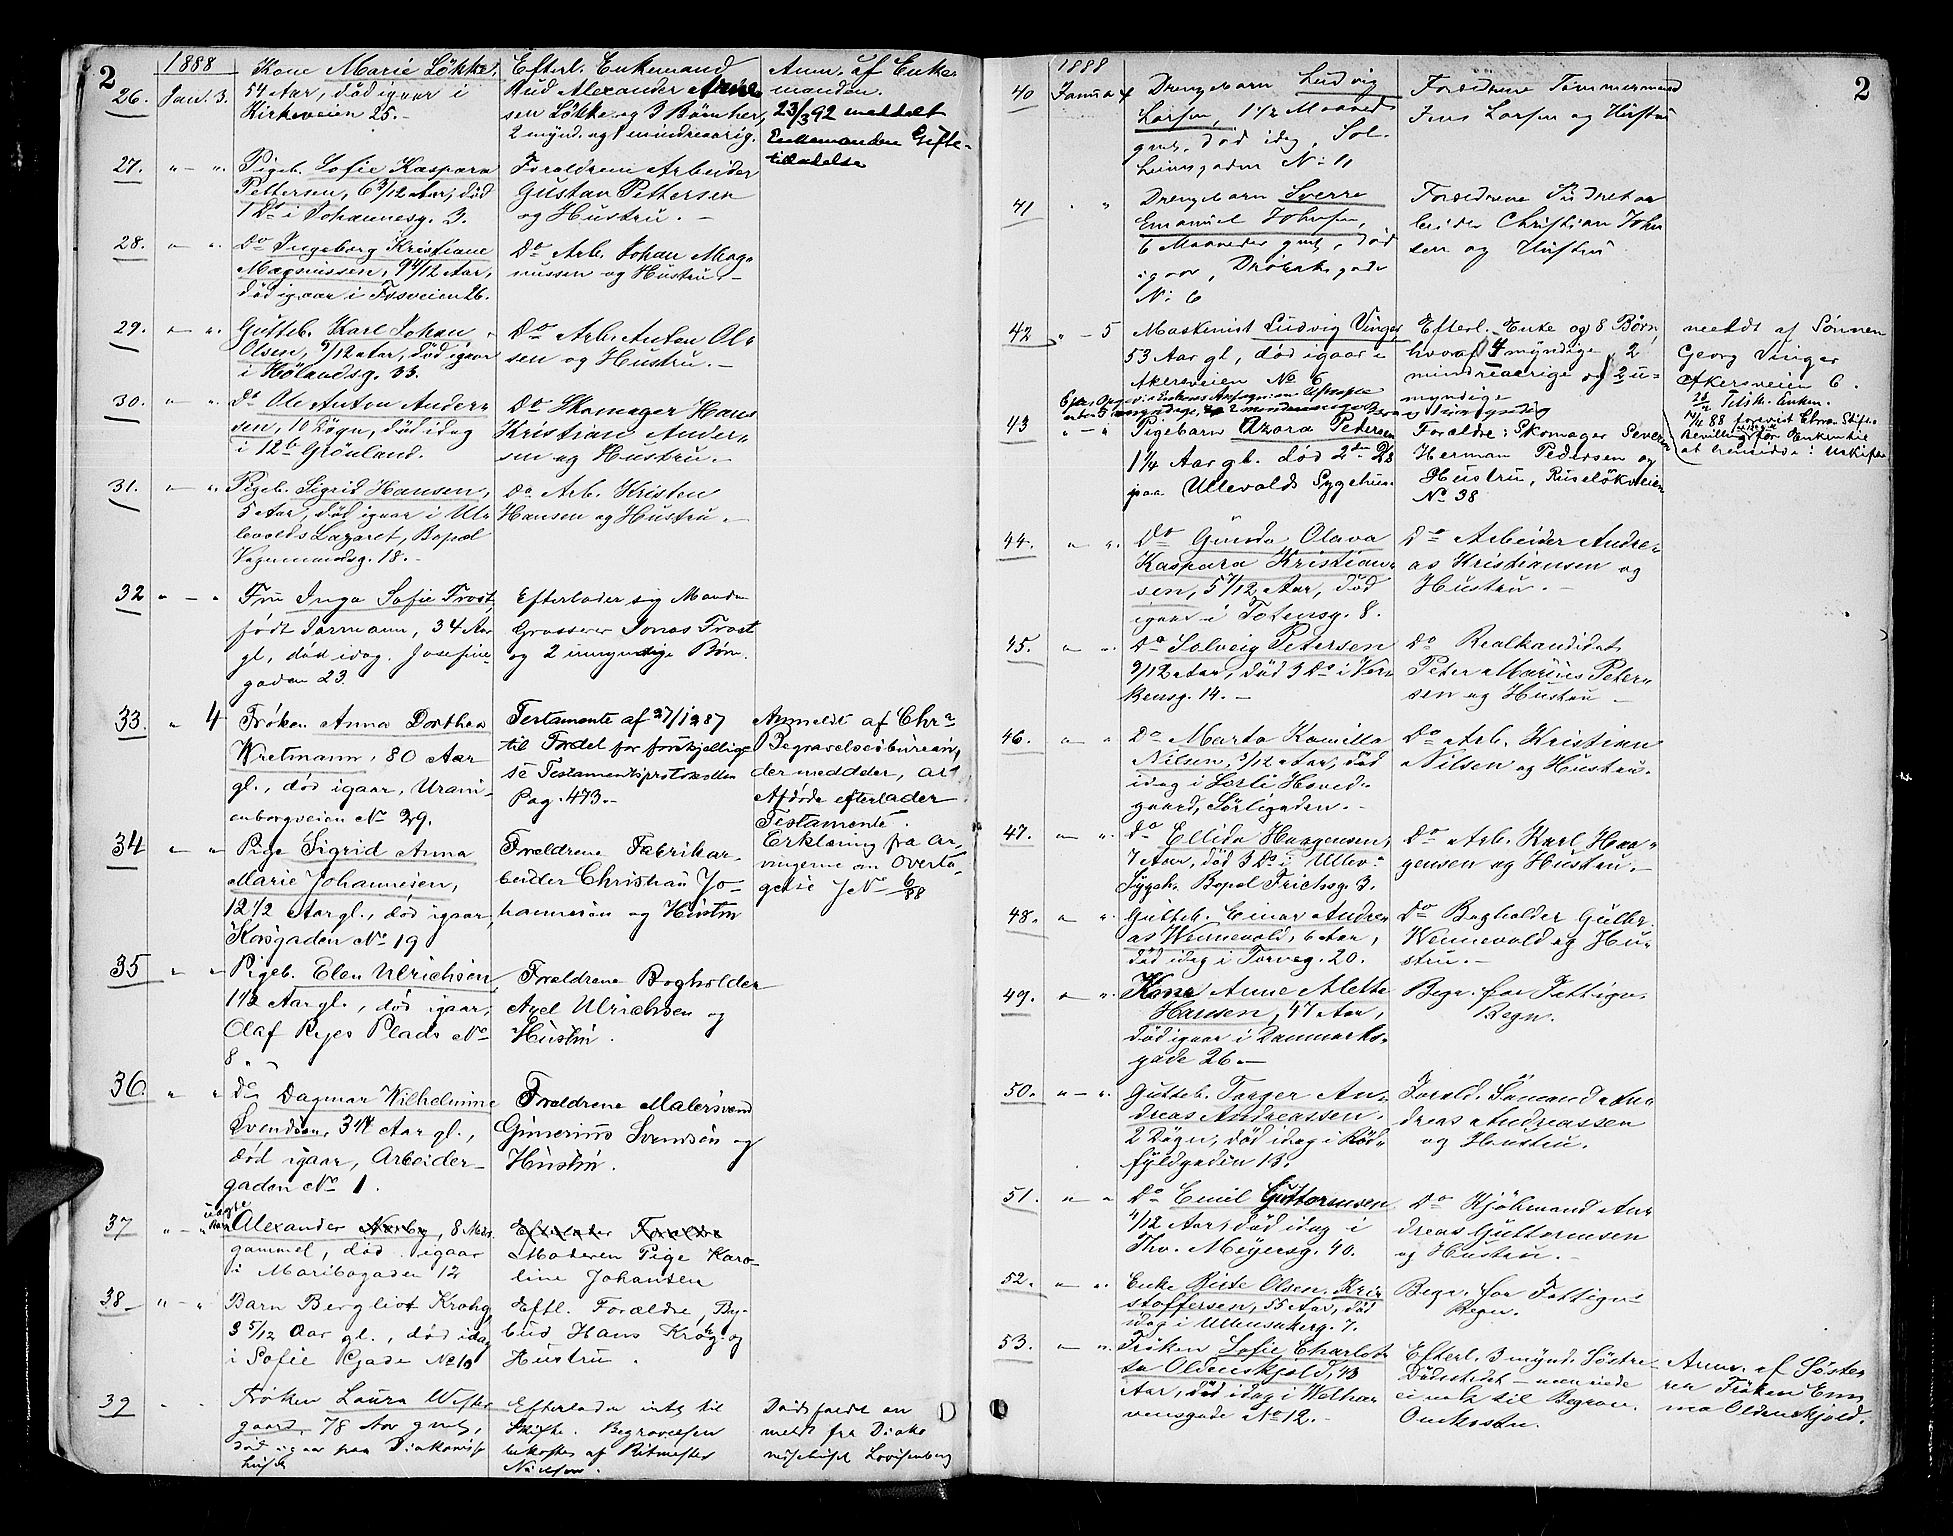 2
1888
26. Jan. 3.
Kone Marie Løkke,
54 Aar, død igaar i
Kirkeveien 25.-
Efterl. Enkemand
Aud Alexander
sen Løkke og 3 Børn her,
2 mynd. og 1 mindreaarig.
Anm. af Enke-
manden.
23/3 92 meddelt
Enkemanden Gifte-
tilladelse
27. " - "
Pigeb. Sofie Kaspara
Pettersen, 6 3/12 Aar, død
1 Do i Johannesg. 3.
Forældrene Arbeider
Gustav Pettersen
og Hustru. -
28. " - "
Do Ingeborg Kristiane
Magnussen, 9 4/12 Aar,
død igaar i Fosveien 26.
Do Arb. Johan Mag-
nussen og Hustru. -
29. " - "
Gutteb. Karl Johan
Olsen, 9/12 Aar, død igaar
i Hølandsg. 33.
Do Arb. Anton Ol-
sen og Hustru. -
30. " - "
Do Ole Anton Ander-
sen, 10 Døgn, død idag
i 12b Grønland.
Do Skomager Hans
Kristian Ander-
sen og Hustru. -
31. " - "
Pigeb. Sigrid Hansen,
5 Aar, død igaar i Ul-
levolds Lazaret, Bopæl
Vognmandsg. 18. -
Do Arb. Kristen
Hansen og Hustru. -
32 " - "
Fru Inga Sofie Trost,
født Jarmann, 34 Aar
gl, død idag. Josefine-
gaden 23.
Efterlader sig Manden
Grosserer Jonas Trost
og 2 umyndige Børn.
33. " 4
Frøken Anna Dorthea
Wretmann, 80 Aar
gl., død igaar, Urani-
enborgveien No 29.
Testamente af 27/12 87
til Fordel for forskjellige
se Testamentsprotokollen
Pag. 473.-
Anmeldt af Chra
Begravelsesbureau,
der meddeler, at
Afdøde efterlader
Testamente.
34 " "
Pige Sigrid Anna
Marie Johannesen,
12 1/2 Aar gl., død igaar,
Korsgaden No 19
Forældrene Fabrikar-
beider Christian Jo-
hannesen og Hustru
Erklæring fra Ar-
vingerne om Overta-
gelse J No 6/88
35 " "
Pigeb. Elen Ulrichsen,
1 1/2 Aar gl., død igaar,
Olaf Ryes Plads No
8.
Forældrene Bogholder
Axel Ulrichsen og
Hustru.
36. " "
Do Dagmar Wilhelmine
Svendsen, 3 1/4 Aar gl.,
død igaar, Arbeider-
gaden No 1.
Forældrene Malersvend
Gunerius Svendsen og
Hustru.
37 " - "
uægte
Barn
Alexander Norby, 8 Mdr.
gammel, død igaar
i Maribogaden 12
Efterlader Forældre
Moderen Pige Karo-
line Johansen
38. " - "
Barn Bergliot Krohg
3 5/12 Aar gl., død idag
i Sofie Gade No 10
Eftl. Forældre, By-
bud Hans Krohg og
Hustru.
39
Frøken Laura Wester
gaard, 78 Aar gml,
død igaar paa Diakonisse
huset
Efterlader intet til
Skifte. Begravelsen
bekostes af Ritmester
Nielsen.
Dødsfaldet an
meldt fra Diako
nissehuset Lovisenberg
2
1888
40 Januar 4
Drengebarn Ludvig
Larsen, 1 1/2 Maaned
gml, død idag, Sol-
heimsgaden No 11
Forældrene Tømmermand
Jens Larsen og Hustru
41 " "
Drengebarn Sverre
Emanuel Johnsen,
6 Maaneder gml, død
igaar, Drøbaksgade
No 6
Forældrene Sudretar
beider Christian John
sen og Hustru
42 " - 5
Maskinist Ludvig Vinger
53 Aar gl, død igaar i
Akersveien No 6
Efterl. Enke og 8 Børn,
hvoraf 4 myndige, 2
mindreaarige og 2 u-
myndige
meldt af Sønnen
Georg Vinger
Akersveien 6.
43 " - "
Pigebarn Azora Pedersen
1 1/4 Aar gl. død 2den Ds
paa Ullevolds Sygehus.
Forældre: Skomager Severin
Herman Pedersen og
Hustru, Ruseløkveien
No 38
44. " "
Do Gunda Olava
Kaspara Kristian-
sen, 5 7/12 Aar, død
igaar i Totensg. 8.
Do Arbeider Andre-
as Kristiansen og
Hustru. -
45. " "
Do Solveig Petersen
9/12 Aar, død 3 Do i Ven
bensg. 14. -
Do Realkandidat
Peter Marius Peter-
sen og Hustru -
46. " "
Do Marta Kamilla
Nilsen, 3/12 Aar, død
idag i Sorli Hoved-
gaard, Sörligaden. -
Do Arb. Kristian
Nilsen og Hustru.
47. " "
Do Ellida Haagensen,
7 Aar, død 3 Do i Ullev.
Sygeh. Bopæl Frichsg. 3.
Do Arb. Karl Haa-
gensen og Hustru. -
48. " "
Gutteb. Einar Andre-
as Wennevold, 6 Aar,
død idag i Torvg. 20.
Do Bogholder Gulbr.
Wennevold og Hu-
stru. -
49. " "
Kone Anne Alette
Hansen, 47 Aar,
død igaar i Danmarks-
gade 26. -
Begr. for Fattigv.
Regn.
50. " - "
Gutteb. Torger An-
dreas Andreassen.
2 Døgn, død idag i Rød-
fyldgaden 13.
Foræld. Sømand An-
dreas Andreassen
og Hustru.
51. " "
Do Emil Guttormsen
4/12 Aar, død idag i
Thv. Meyersg. 40.
Do Kjøbmand An-
dreas Guttormsen
og Hustru. -
52. " "
Enke Birte Olsen, Kri-
stoffersen, 55 Aar, død
idag i Ullensakerg. 7.
Begr. for Fattigv.
Regn.
53. " "
Frøken Sofie Charlot-
te Oldenskjold, 43
Aar, død idag i Welhav
vensgade No 12. -
Efterl. 3 mynd. Søstre
Dødsstedet -
ei nok til Begrav.
Omkostn.
Anm. af Søste-
ren Frøken Em-
ma Oldenskjold.